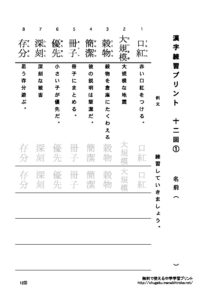 漢字練習プリント 十二回① 名前（ ）
例文
練習していきましょう。
1 口紅 赤い口紅をつける。 口紅 口紅
2 大規模 大規模な地震 大規模 大規模
3 穀物 穀物を倉庫にたくわえる 穀物 穀物
4 簡潔 彼の説明は簡潔だ。 簡潔 簡潔
5 冊子 冊子にまとめる。 冊子 冊子
6 優先 小さい子が優先だ。 優先 優先
7 深刻 深刻な被害 深刻 深刻
8 存分 思う存分遊ぶ。 存分 存分
12回
無料で使える中学学習プリント